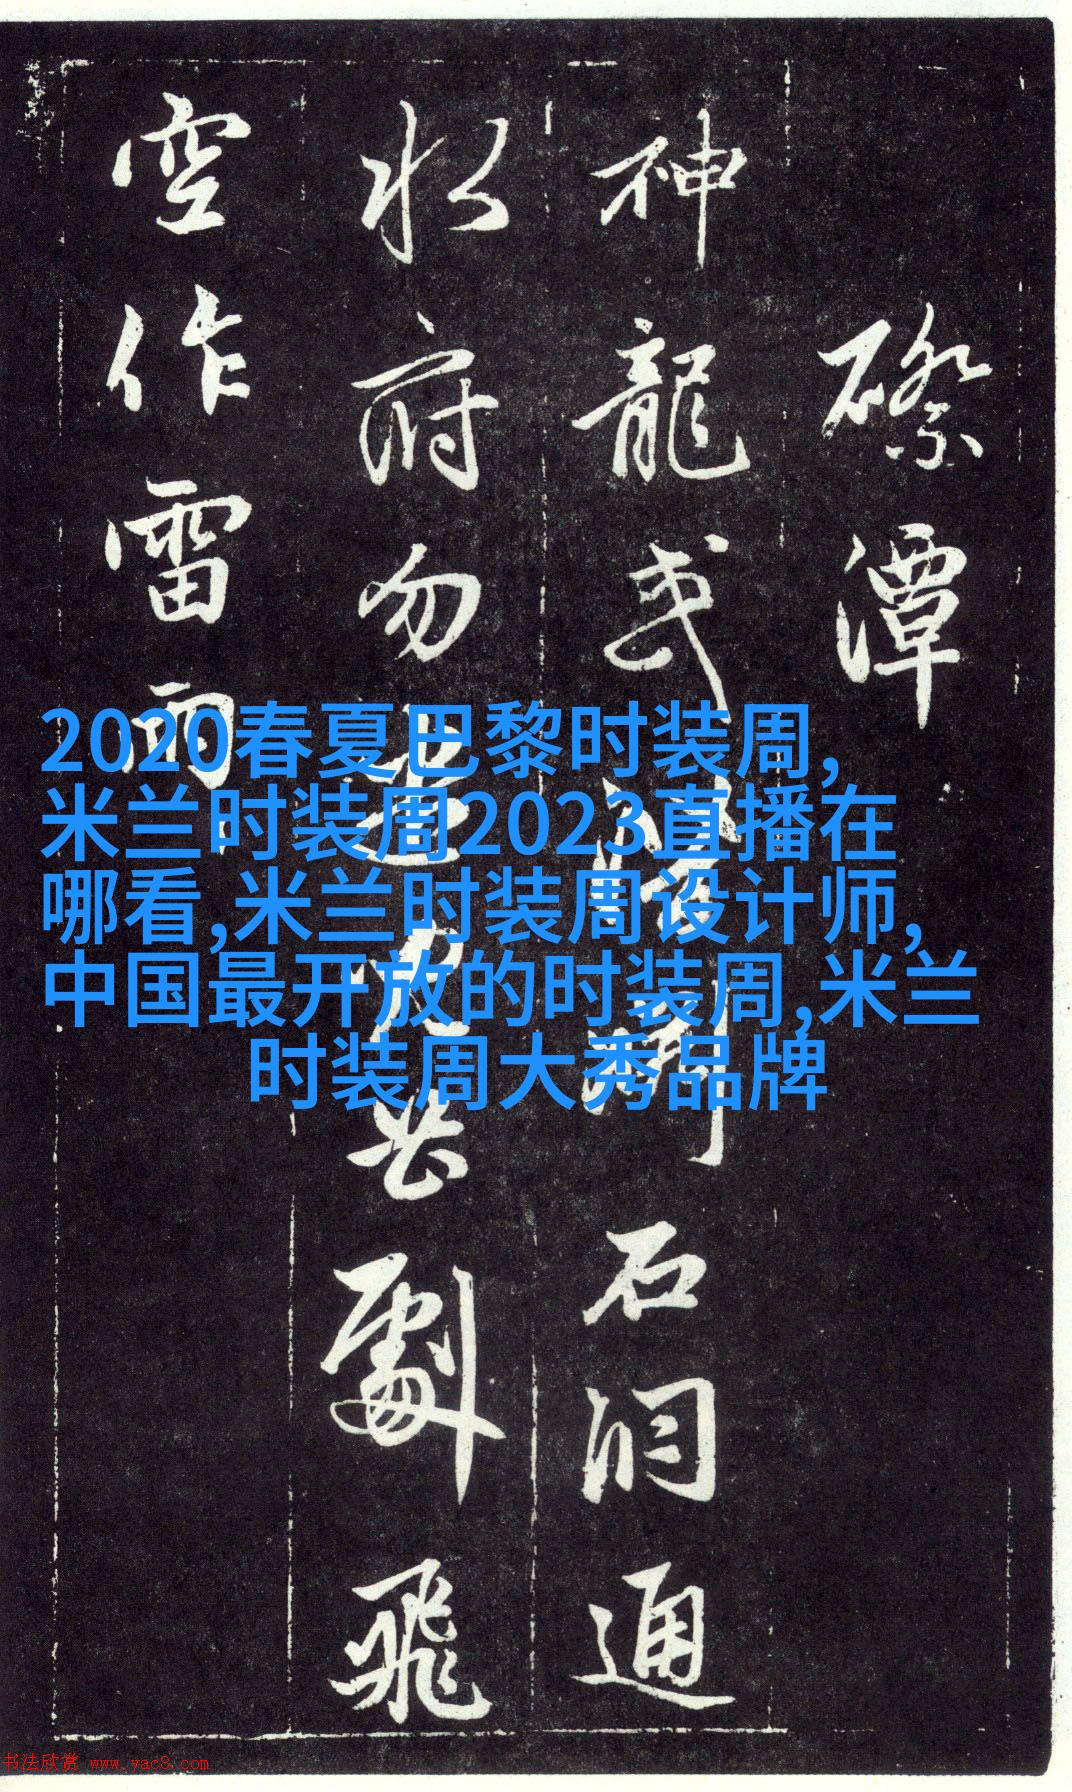 潭
神龍或石洞通
水府勿劇飛
空作雷雨
2020春夏巴黎时装周,
米兰时装周2023直播在
哪看,米兰时装周设计师,
中国最开放的时装周,米兰
时装周大秀品牌
书法欣赏 www.yac8.com